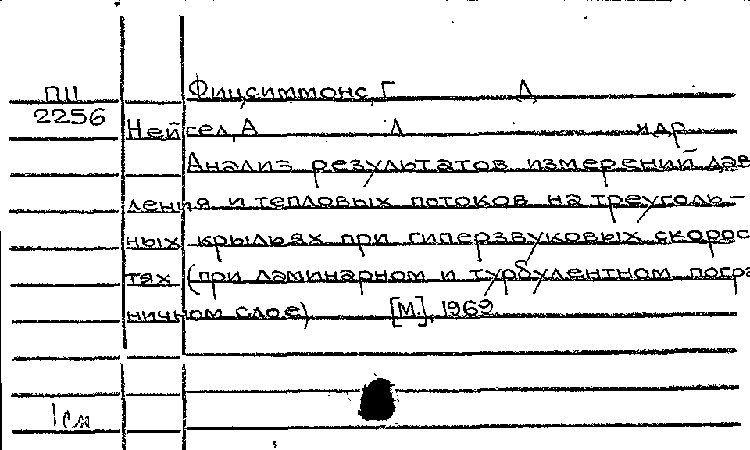 ПП Фицсиммонс, Г Д
2256 Нейсел, А Л и др.
Анализ результатов измерений дав
ления и тепловых потоков на треуголь-
ных крыльях при гиперзвуковых скорос
тях (при ламинарном и турбулентном погра
ничном слое) [М.], 1969
1см